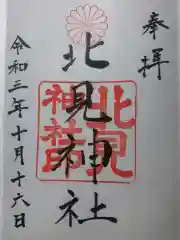 奉拝
北見神社
北見
神社
令和三年十月十六日